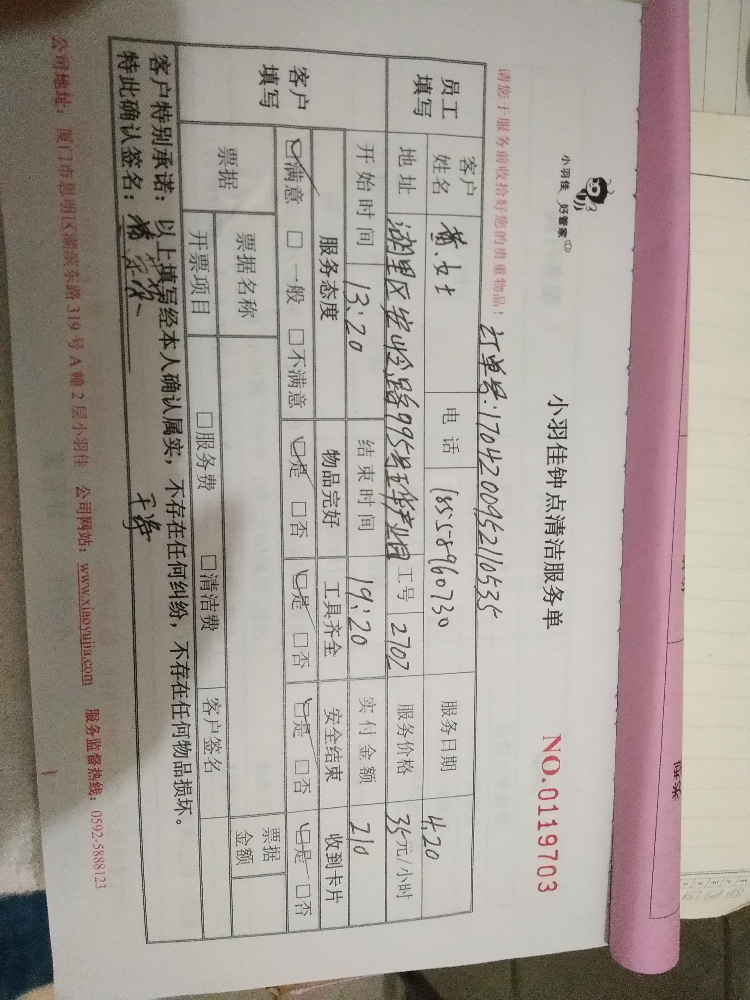 小羽佳 好管家
小羽佳钟点清洁服务单
NO.0119703
请您于服务前收拾好您的贵重物品！
订单号:1704200952110535
员工填写
客户姓名 黄女士 电话 18558960730 服务日期 4.20
地址 湖里区安岭路995号 工号 2702 服务价格 35元/小时
开始时间 13:20 结束时间 19:20 实付金额 210
客户填写
服务态度 物品完好 工具齐全 安全结束 收到卡片
☑满意 □一般 □不满意 ☑是 □否 ☑是 □否 ☑是 □否 ☑是 □否
票据 票据名称 票据金额
开票项目 □服务费 □清洁费 客户签名
客户特别承诺：以上填写经本人确认属实，不存在任何纠纷，不存在任何物品损坏。
特此确认签名：
公司地址：厦门市思明区湖滨东路319号A幢2层小羽佳 公司网站：www.xiaoyujia.com 服务监督热线：0592-5888123